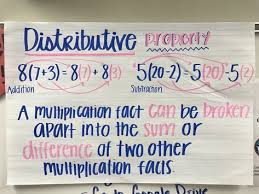 Distributive property
8(7+3)=8(7)+8(3) 5(20-2)=5(20)-5(2)
Addition Subtraction
A multiplication fact can be broken
apart into the sum or
difference of two other
multiplication facts.
Go in Google Drive